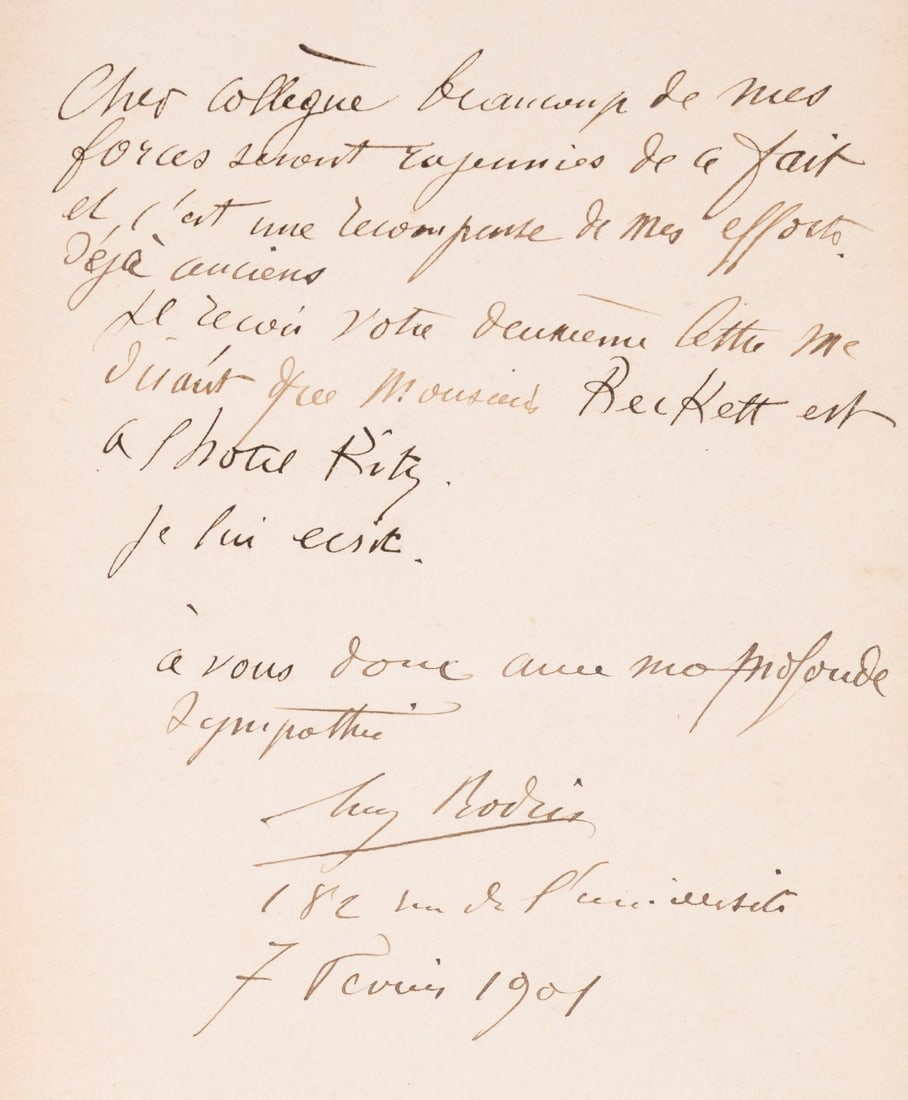 Cher collègue beaucoup de mes
forces seront rajeunies de ce fait
et c'est une recompense de mes efforts.
déjà anciens
Je reçois votre deuxième lettre me
disant que Monsieur Beckett est
a l'hotel Ritz.
je lui ecris.
à vous donc avec ma profonde
sympathie
Aug Rodin
182 rue de l'université
7 Fevrier 1901